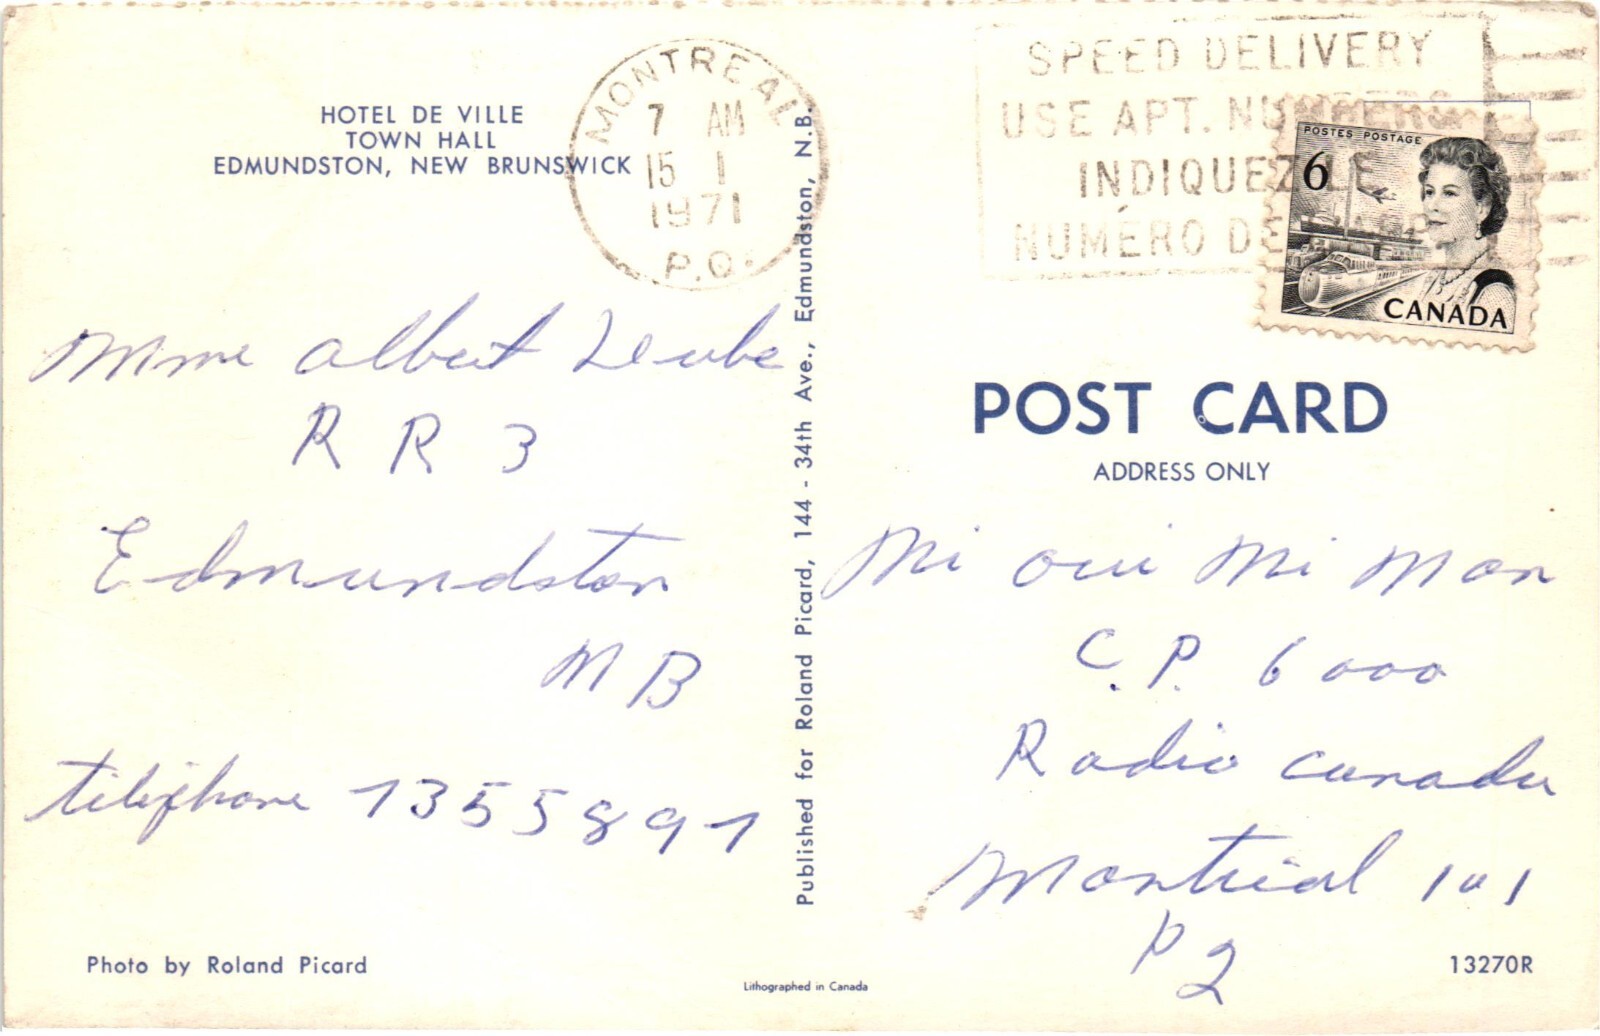 HOTEL DE VILLE
TOWN HALL
EDMUNDSTON, NEW BRUNSWICK
MONTREAL
7 AM
15 1
1971
P.Q.
SPEED DELIVERY
USE APT. NUMBERS
INDIQUEZ LE
NUMÉRO DE
POSTES POSTAGE
6
CANADA
Mme albert
R R 3
Edmundston
N B
téléphone 7355897
Published for Roland Picard, 144 - 34th Ave., Edmundston, N.B.
POST CARD
ADDRESS ONLY
Mi oui Mi Mon
C.P. 6000
Radio Canada
Montréal 101
P Q
Photo by Roland Picard
Lithographed in Canada
13270R